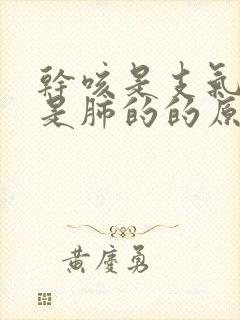 幹咳是支氣
是肺的的原
黃慶勇